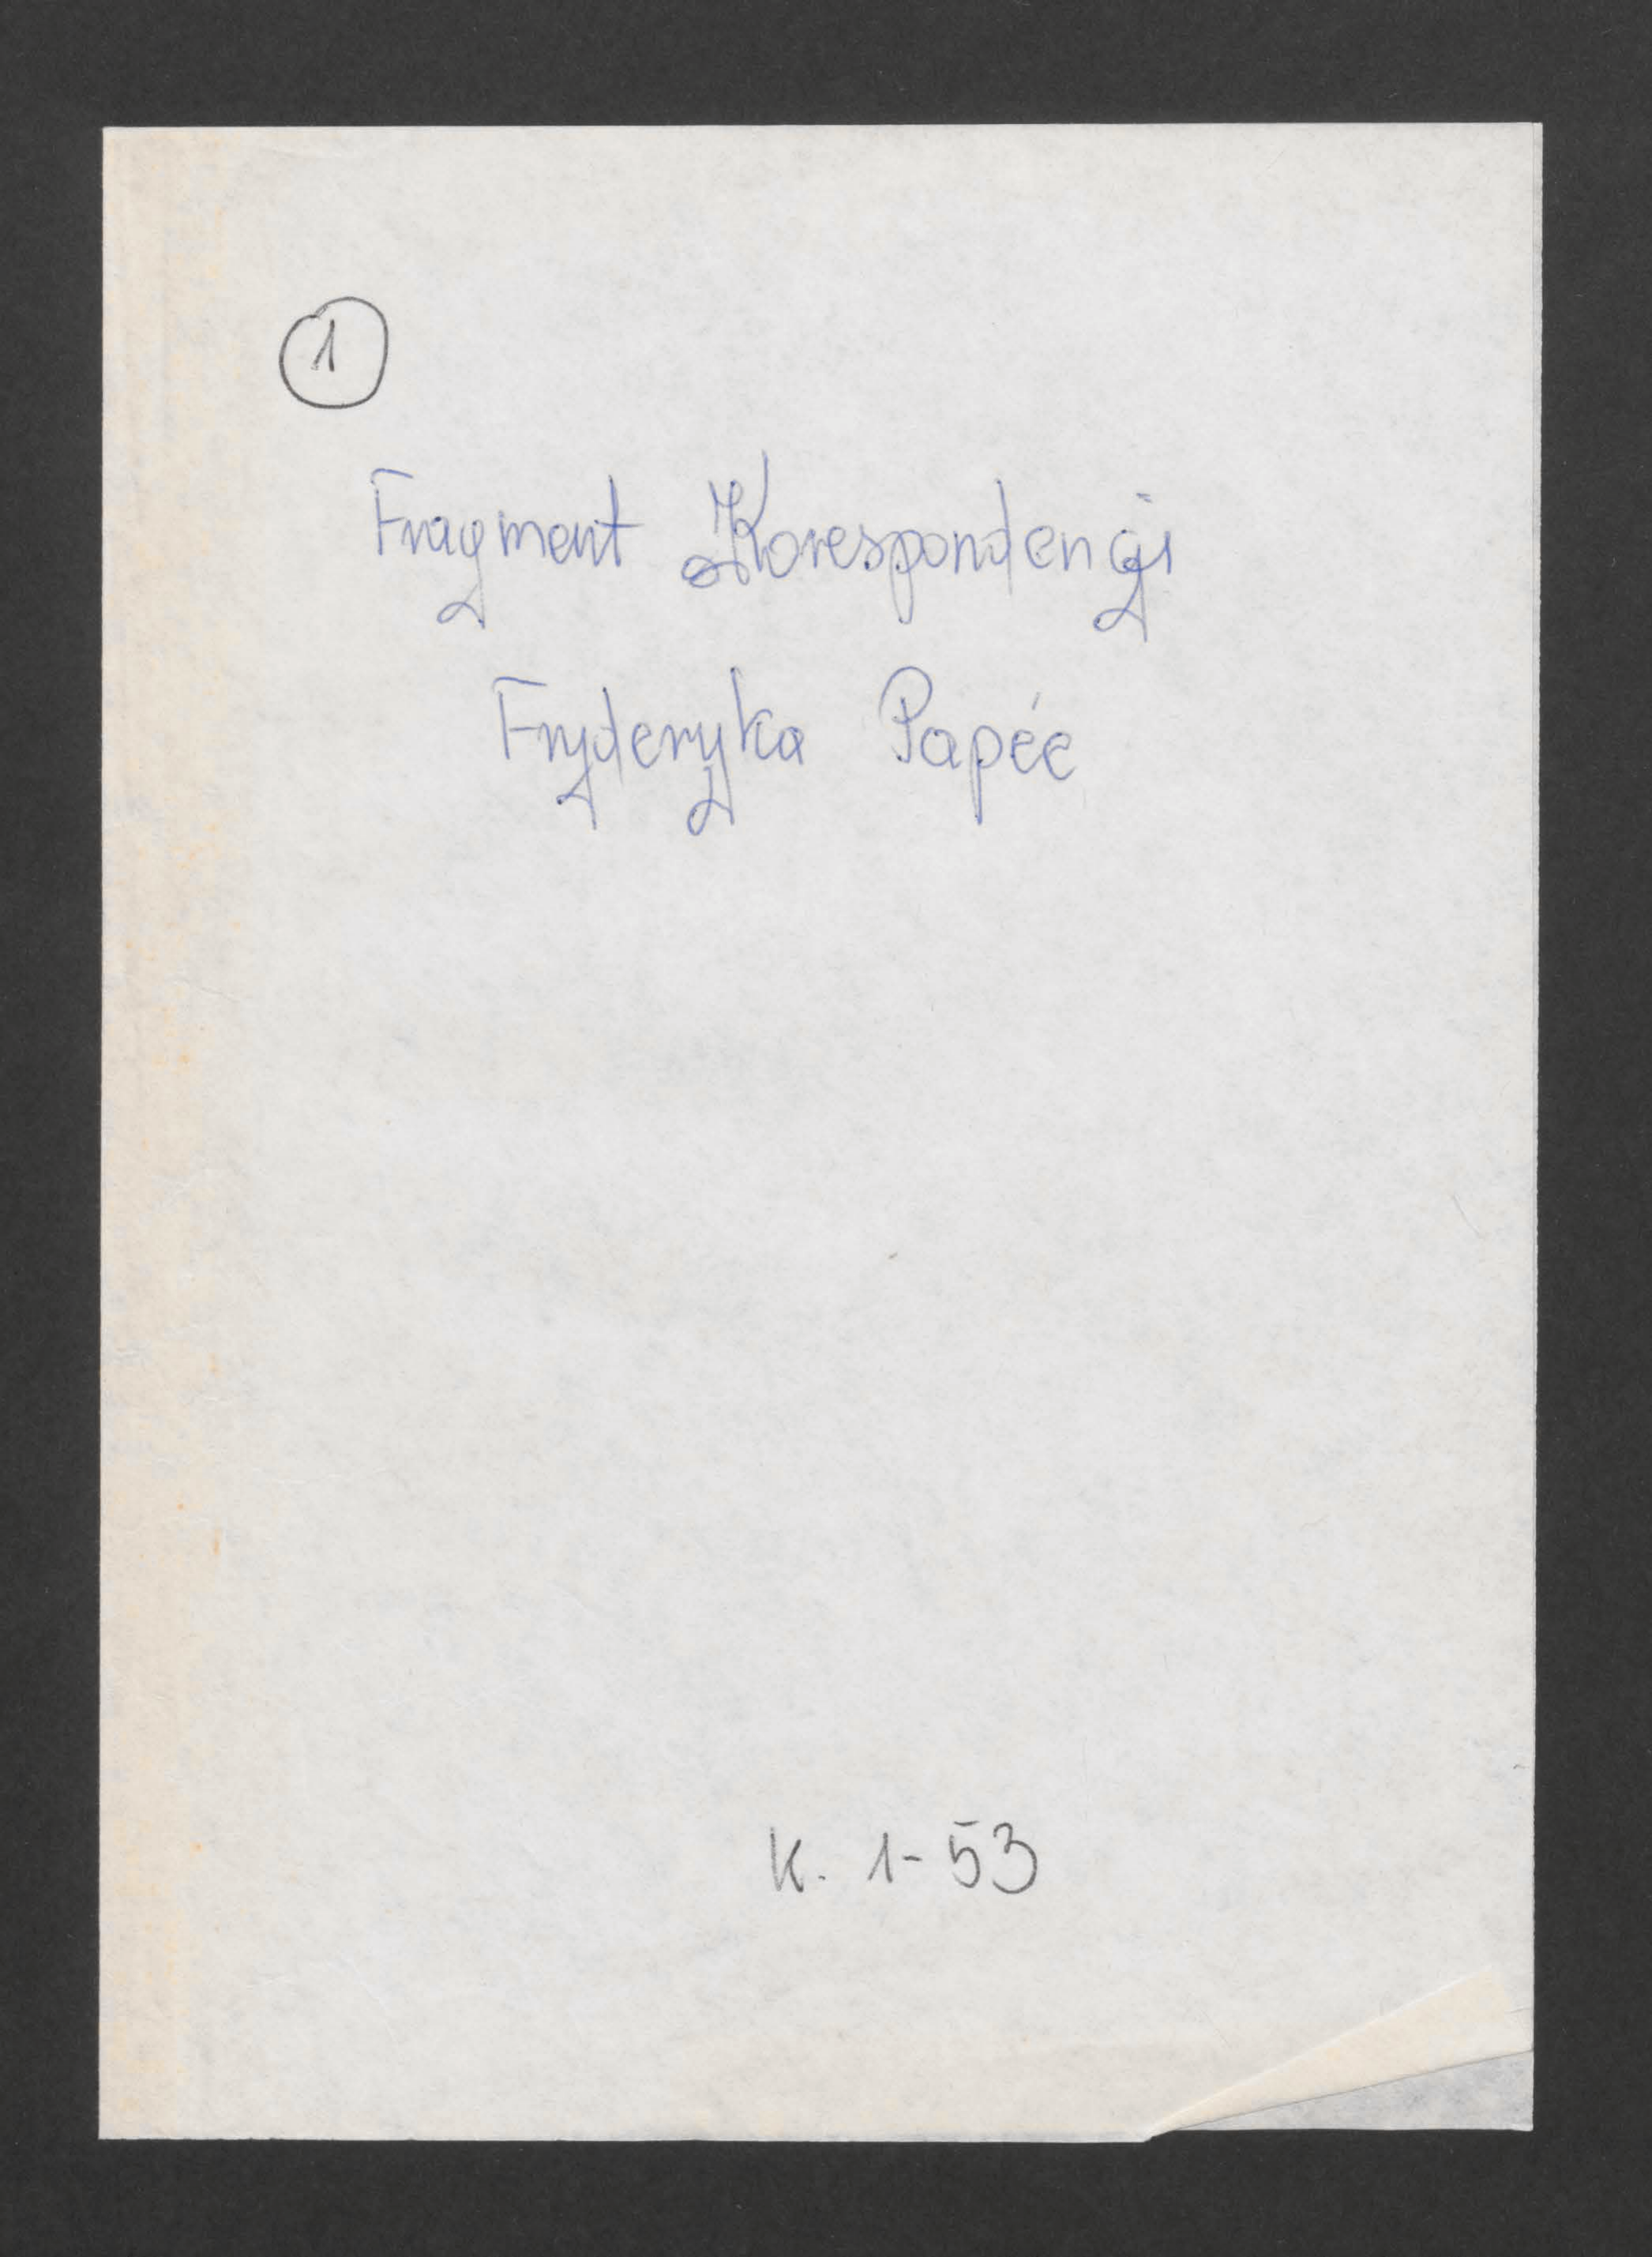 1
Fragment Korespondencji
Fryderyka Papée
K. 1-53